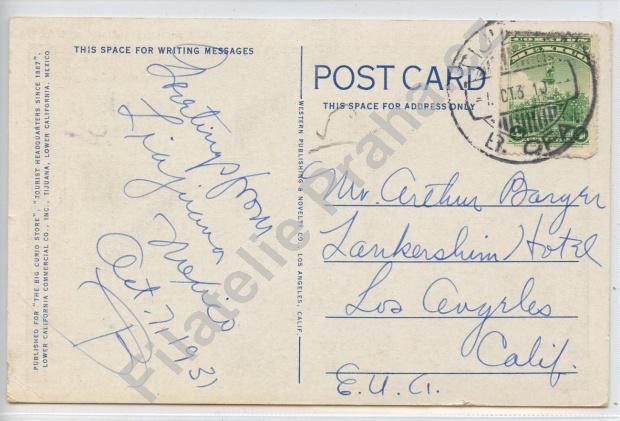 PUBLISHED FOR "THE BIG CURIO STORE", "TOURIST HEADQUARTERS SINCE 1887".
LOWER CALIFORNIA COMMERCIAL CO., INC., TIJUANA, LOWER CALIFORNIA, MEXICO
THIS SPACE FOR WRITING MESSAGES
Greetings from
Tiajuana
Mexico
Oct-7-1931
WESTERN PUBLISHING & NOVELTY CO., LOS ANGELES, CALIF.
POST CARD
THIS SPACE FOR ADDRESS ONLY
Mr. Arthur Barger
Lankershim Hotel
Los Angeles
Calif.
E.U.A.
Filatelie Praha.cz